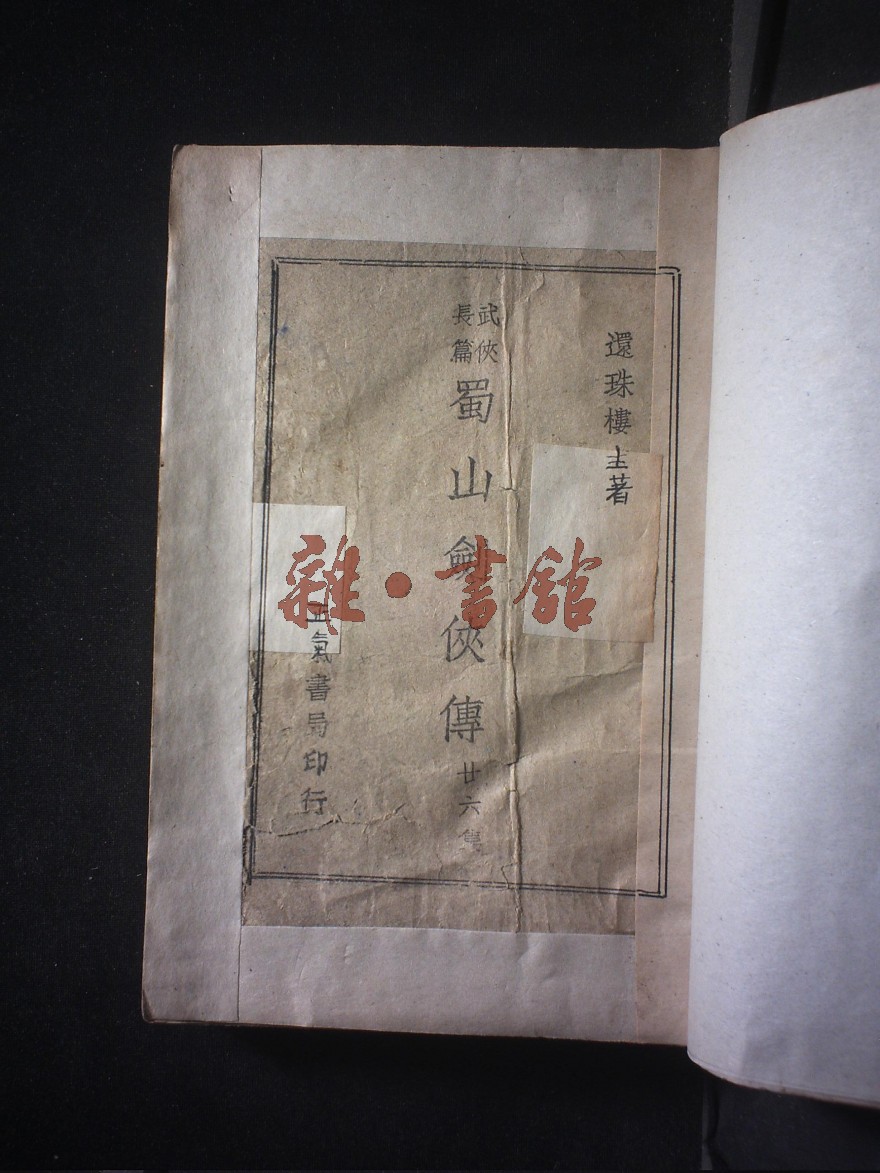 還珠樓主著
武俠
長篇
蜀山劍俠傳
廿六集
正氣書局印行
雜·書館